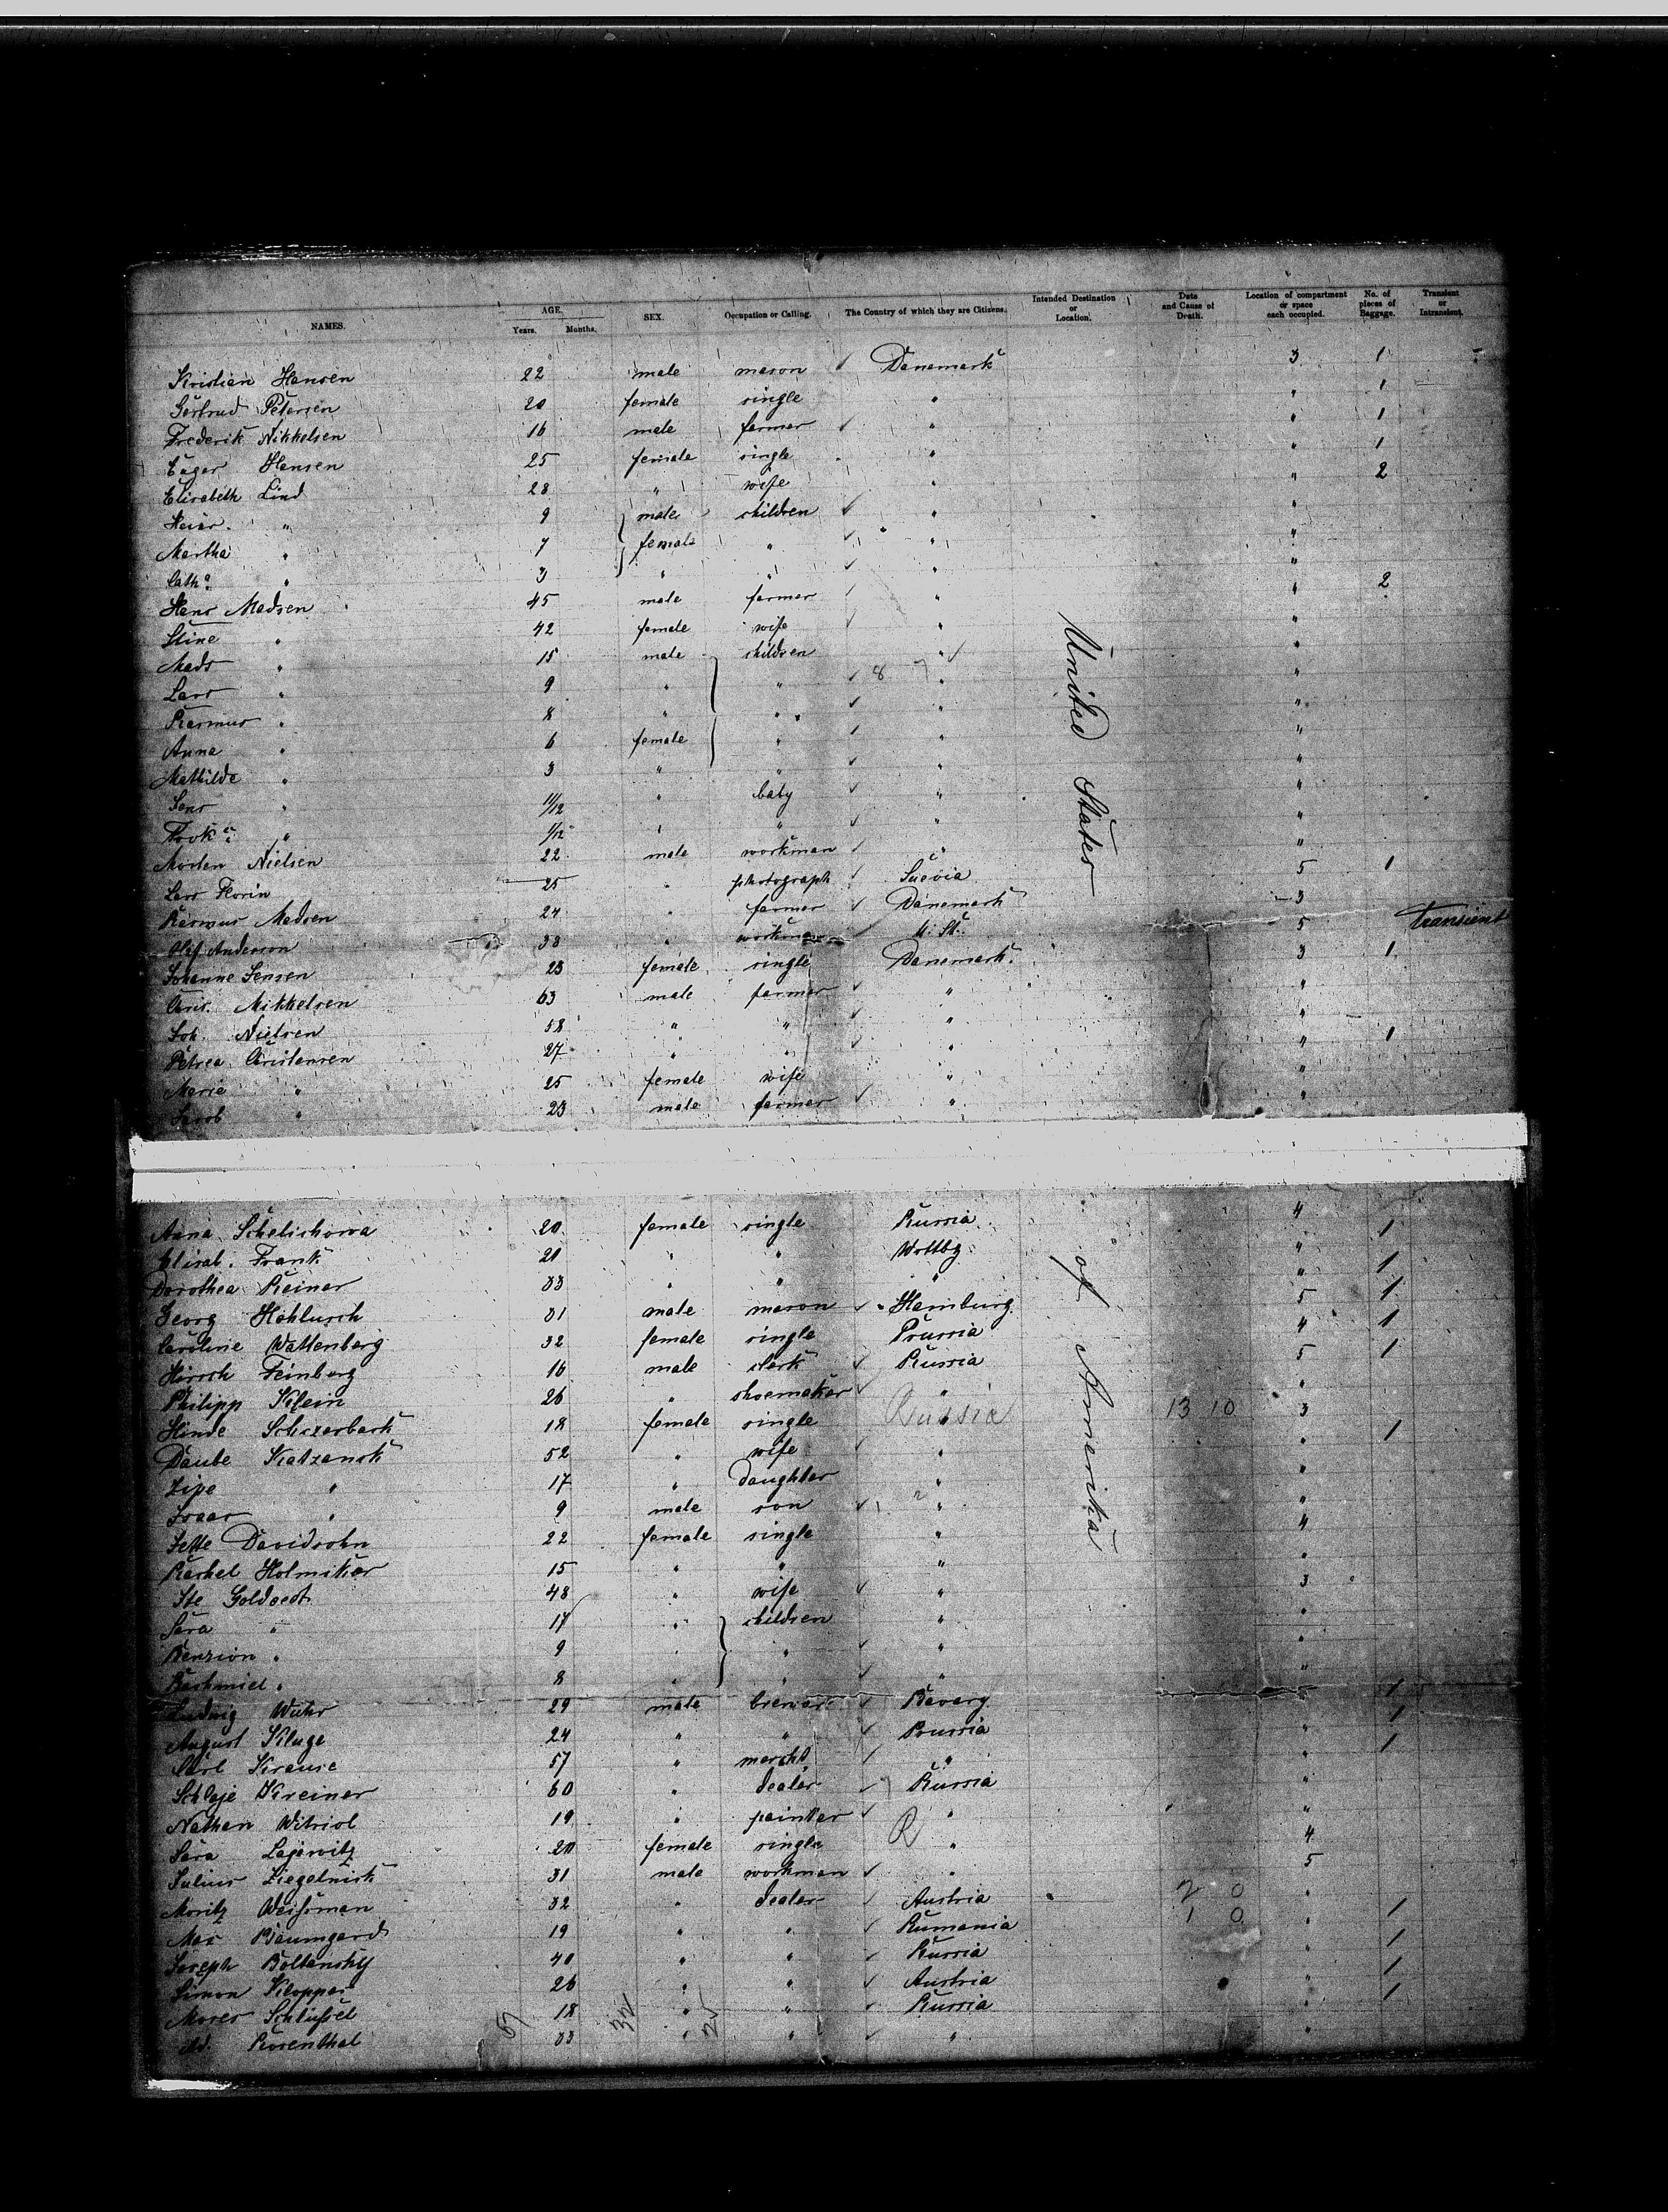 NAMES. AGE. Years. Months. SEX. Occupation or Calling. The Country of which they are Citizens. Intended Destination or Location. Date and Cause of Death. Location of compartment or space each occupied. No. of pieces of Baggage. Transient or Intransient.
Kristian Hansen 22 male mason Danemark 3 1
Gertrud Petersen 20 female single " " 1
Frederik Nikkelsen 16 male farmer " " 1
Hansen 25 female single " " 1
Elisabeth Lind 28 " wife " " 2
" 9 male children "
Martha " 7 female " " "
Cath. " 3 " " " "
Hans Madsen 45 male farmer " " 2
Stine " 42 female wife " "
Mads " 15 male children " "
Lars " 9 " " " "
Rasmus " 8 " " " "
Anna " 6 female " " "
Mathilde " 3 " " " "
Jens " 11/12 " baby " "
" 1/12 " " " "
Morten Nielsen 22 male workman " "
Lars Florin 25 " photograph Suevia 5 1
Rasmus Madsen 24 " farmer Danemark 3
Olif Anderson 38 " workman U. St. 5 transient
Johanne Jensen 23 female single Danemark 3 1
Chris. Mikkelsen 63 male farmer " "
Joh. Nielsen 58 " " " "
Petrea Christensen 27 " " " " 1
Marie " 25 female wife " "
Jacob " 23 male farmer " "
United States
Anna Schelichowa 20 female single Russia 4 1
Elisab. Frank 21 " " Wrttbg. " 1
Dorothea Reiner 33 " " " " 1
Georg Hohlusch 31 male mason Hamburg 5 1
Caroline Wattenberg 32 female single Prussia 4 1
Hirsch Feinberg 16 male clerk Russia 5
Philipp Klein 26 " shoemaker " "
Hinde 18 female single Russia 13 10 3 1
Daube Katzansk 52 " wife " "
Zipe " 17 " daughter " "
Isaac " 9 male son " "
Jette Davidsohn 22 female single " 4
Rachel Holmiker 15 " " " "
Ite 48 " wife " 3
Sara " 17 " children " "
Benzion " 9 " " " "
Rachmiel " 8 " " " "
Ludwig Wuhr 29 male brewer Bavarg 5 1
August Kluge 24 " " Prussia " 1
Carl Krause 57 " mercht " " 1
Schlaje Kreiner 60 " dealer Russia "
Nathan Witriol 19 " painter " "
Sara Lajewitz 20 female single R " 4
Julius Ziegelnick 31 male workman " 5
Moritz Weissman 32 " dealer Austria 2 0 " 1
Max Baumgard 19 " " Rumania 1 0 " 1
Joseph Boltansky 40 " " Russia " 1
Simon Klopper 26 " " Austria " 1
Moses Schlüssel 18 " " Russia "
Ad. Rosenthal 33 " " " "
of Amerika